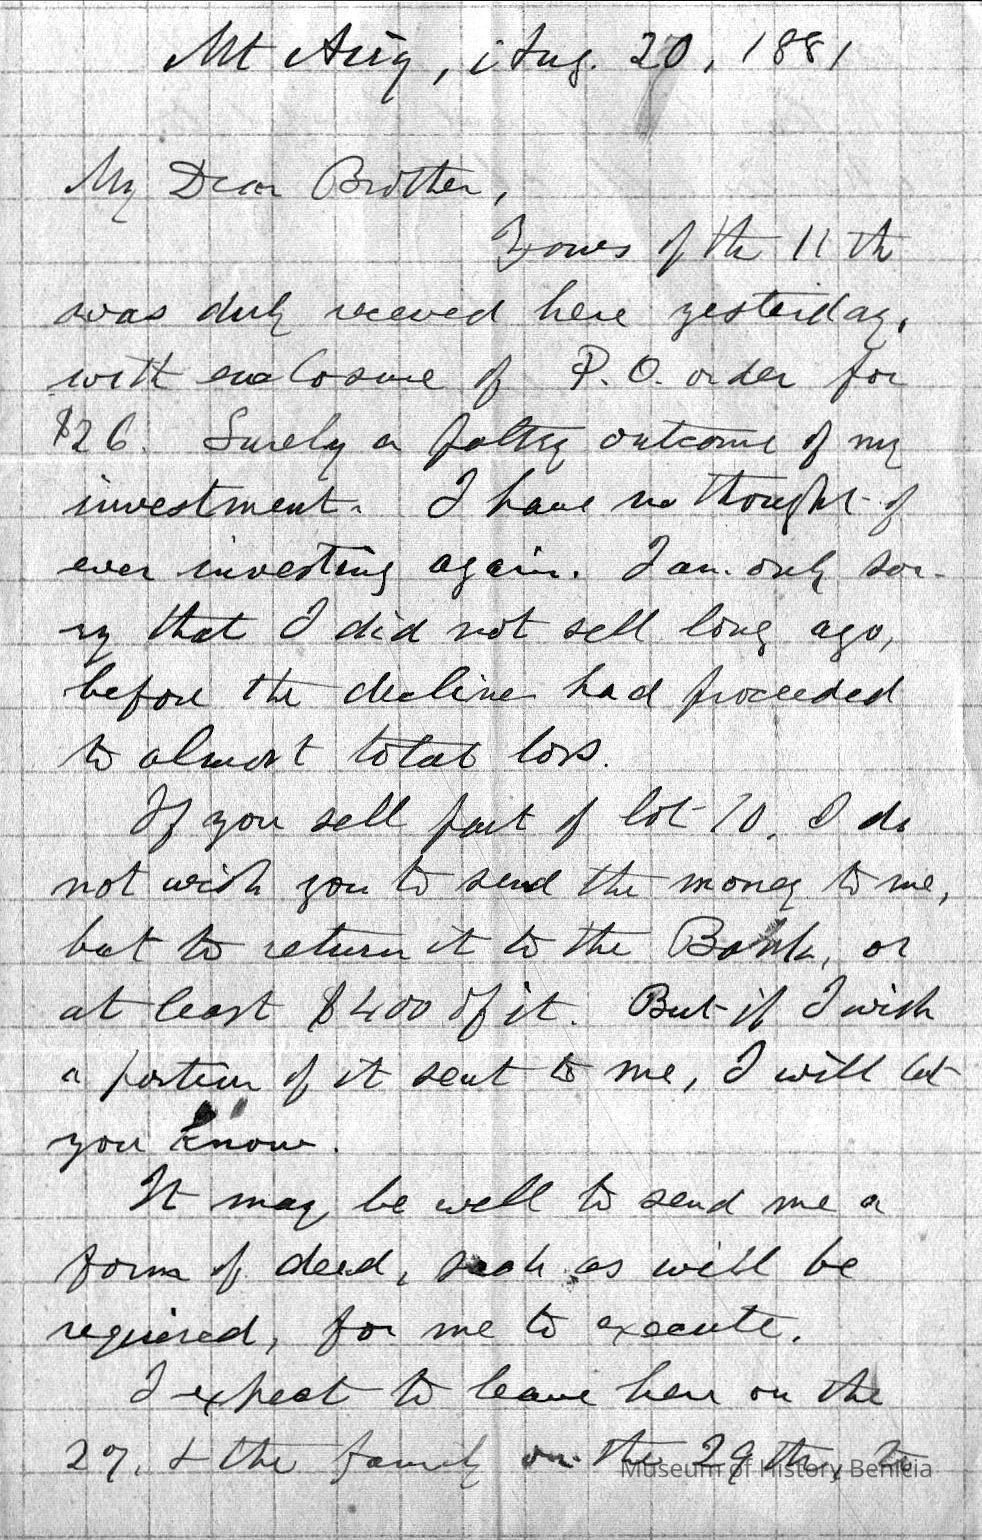 Mt Airy, Aug. 20, 1881
My Dear Brother,
Yours of the 11th
was duly received here yesterday,
with enclosure of P.O. order for
$26. Surely a paltry outcome of my
investment. I have no thought of
ever investing again. I am only sor-
ry that I did not sell long ago,
before the decline had proceeded
to almost total loss.
If you sell part of lot 10, I do
not wish you to send the money to me,
but to return it to the Bank, or
at least $400 of it. But if I wish
a portion of it sent to me, I will let
you know.
It may be well to send me a
form of deed, such as will be
required, for me to execute.
I expect to leave here on the
27, & the family on the 29th, to
Museum of History Benicia